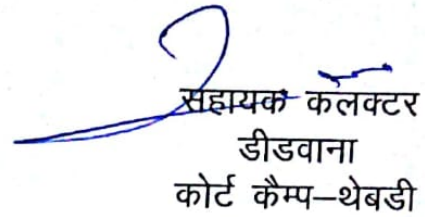 सहायक कलक्टर
डीडवाना
कोर्ट कैम्प–थेबडी